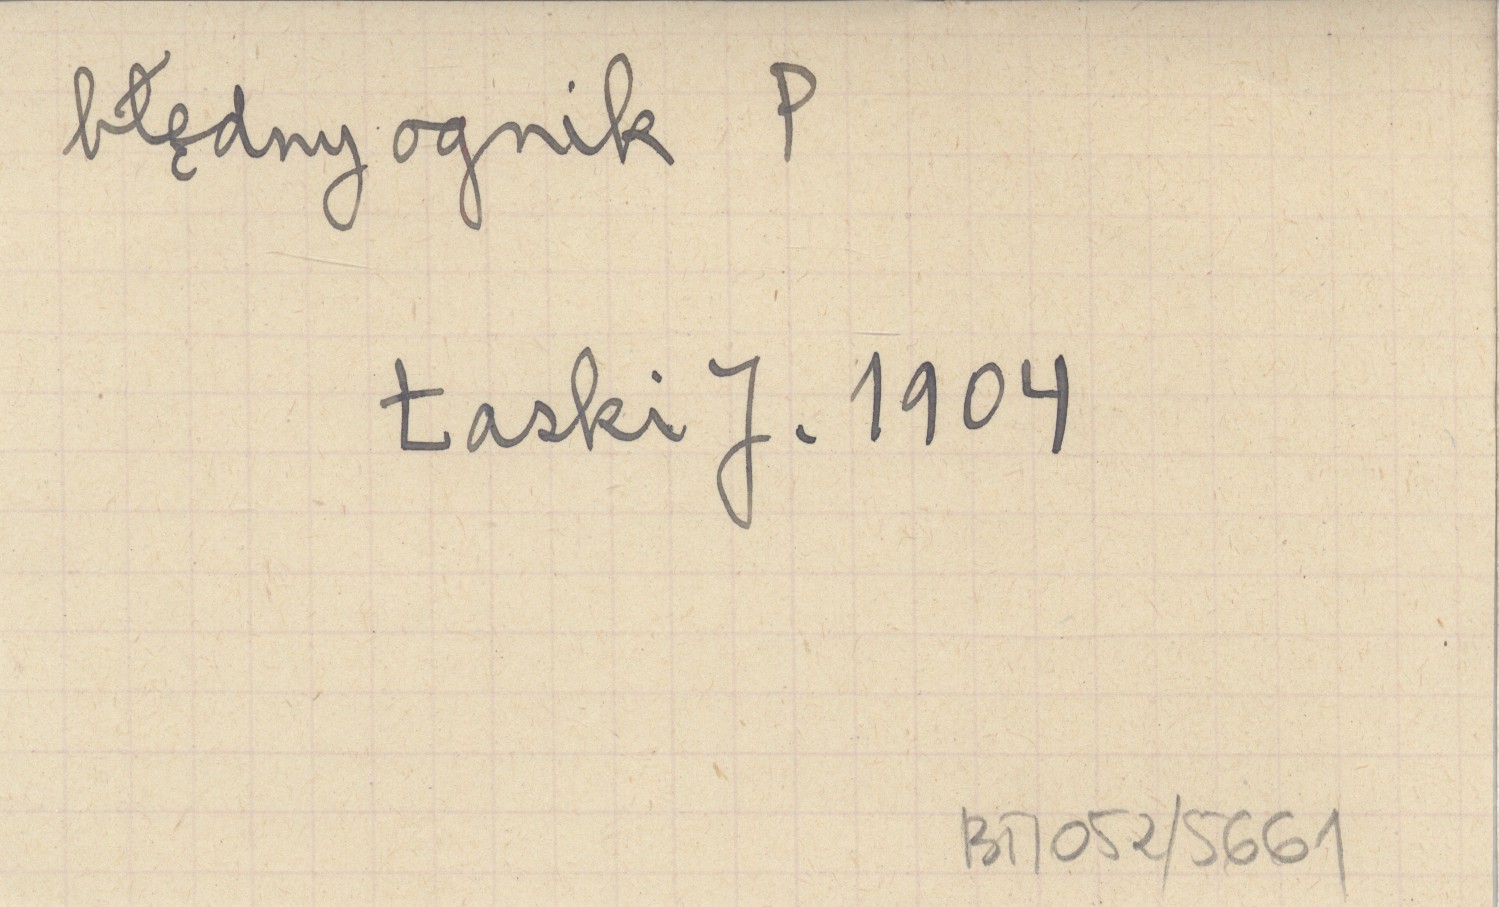 błędny ognik P
Łaski J. 1904
BП052/5661